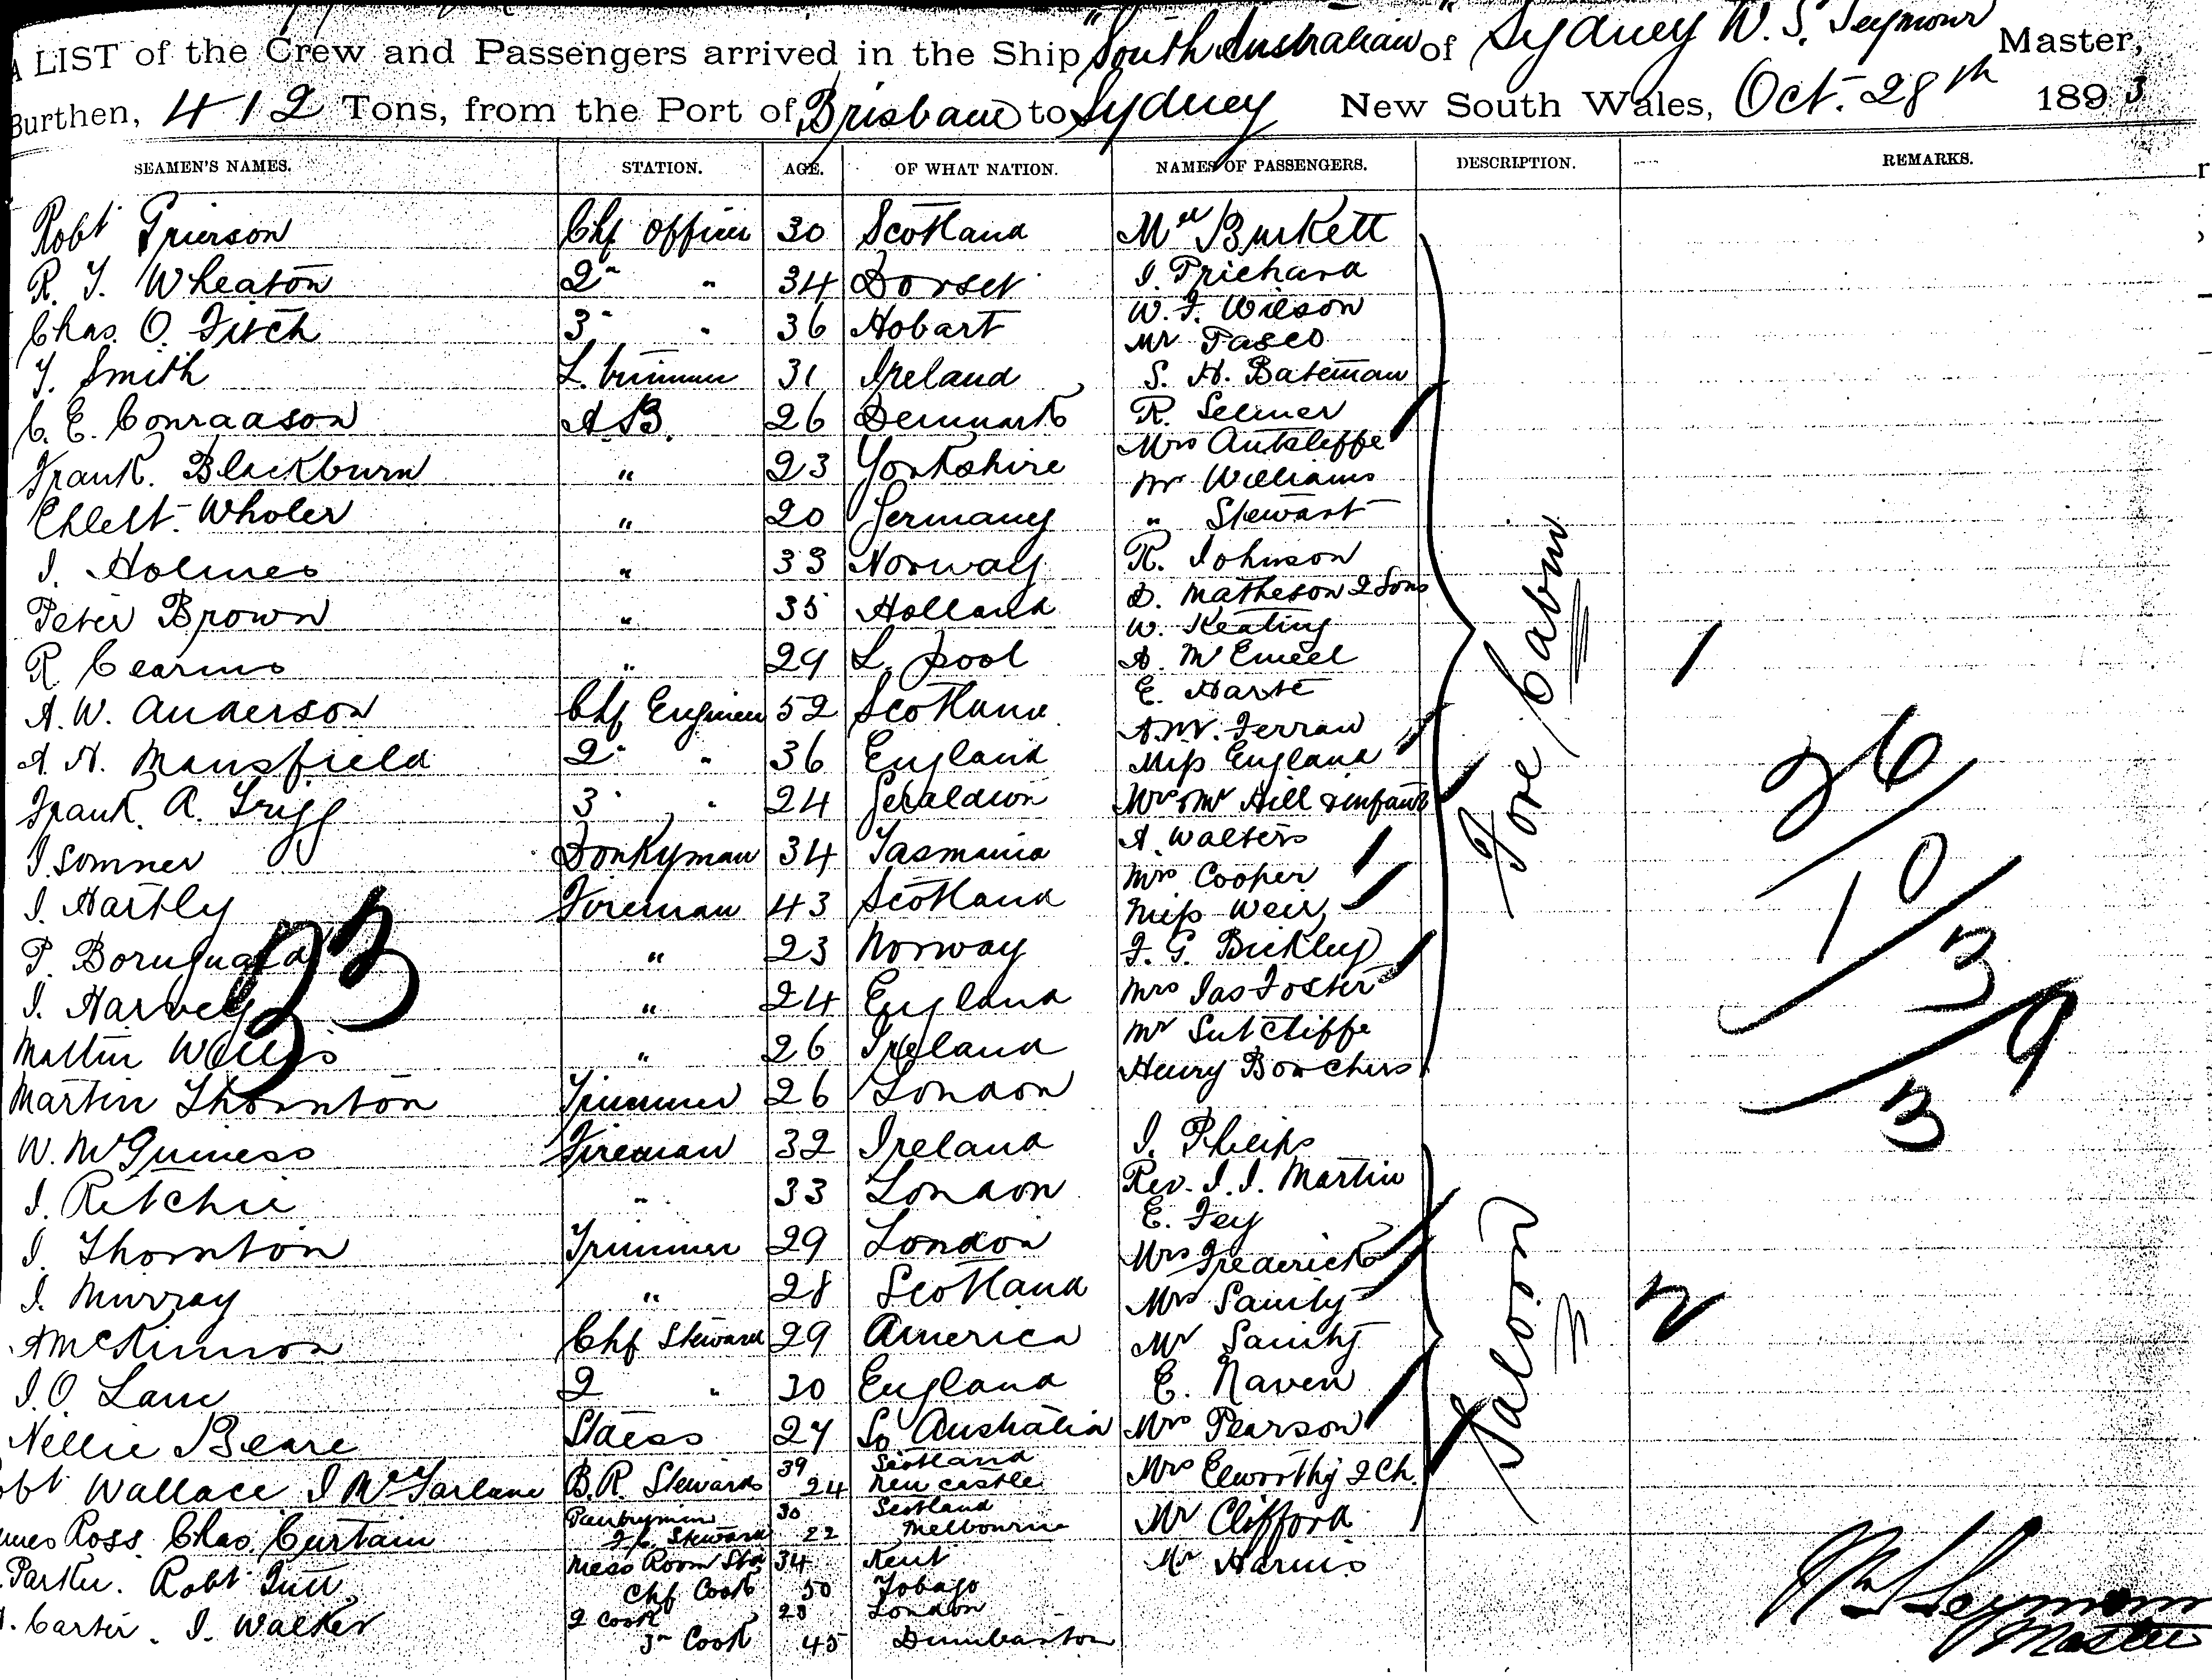 A LIST of the Crew and Passengers arrived in the Ship "South Australian" of Sydney W. S. Seymour Master,
Burthen, 412 Tons, from the Port of Brisbane to Sydney New South Wales, Oct. 28th 1893
SEAMEN'S NAMES. STATION. AGE. OF WHAT NATION. NAMES OF PASSENGERS. DESCRIPTION. REMARKS.
Robt Grierson Chf Officer 30 Scotland Mr Burkett
R. J. Wheaton 2" " 34 Dorset I. Prichard
W. F. Wilson
Chas. O. Fitch 3" " 36 Hobart Mr Pasco
J. Smith L. trimmer 31 Ireland S. H. Bateman
C. E. Conradson A.B. 26 Denmark R. Selmer
Mrs Autcliffe
Frank. Blackburn " 23 Yorkshire Mr Williams
Ehlert. Wholer " 20 Germany " Stewart
I. Holmes " 33 Norway R. Johnson
D. Matheson 2 Sons
Peter Brown " 35 Holland W. Keating
R Cearns " 29 L. pool A.
E. Harte
A. W. Anderson Chf Engineer 52 Scotland A. W. Ferran
A. H. Mansfield 2" " 36 England Miss England
Frank. A. Trigg 3" " 24 Geraldton Mrs & Mr Hill & infant
I Somner Donkyman 34 Tasmania A. Walters
Mrs Cooper
I. Hartly Fireman 43 Scotland Miss Weir
P. " 23 Norway F. G. Bickley
I. Harvey " 24 England Mrs Jas Foster
Mr Sutcliffe
Martin Willis " 26 Ireland Henry Bowchers
Fore Cabin
Martin Thornton Trimmer 26 London
W. McGuiness Fireman 32 Ireland I. Philips
I. Ritchie " 33 London Rev. I. I. Martin
E. Fey
I. Thornton Trimmer 29 London Mrs Frederick
I. Murray " 28 Scotland Mrs Sanity
A McKinnon Chf Steward 29 America Mr Sanity
I. O. Lane 2 " 30 England E. Naven
Nellie Beare Staess 27 So Australia Mrs Pearson
Robt Wallace I McFarlane B.R. Stewards 39 Scotland
24 New castle Mrs Elworthy 2 Ch.
James Ross. Chas. Curtain Pantryman 30 Scotland
F. C. Steward 22 Melbourne Mr Clifford
Parker. Robt Tutt Mess Room Std 34 Kent Mr Harris
Chf Cook 50 Tobago
Carter. I. Walker 2 Cook 28 London
3rd Cook 45 Dumbarton
Saloon
33
1
26/
10/
3
9/
3
2
W S Seymour
Master